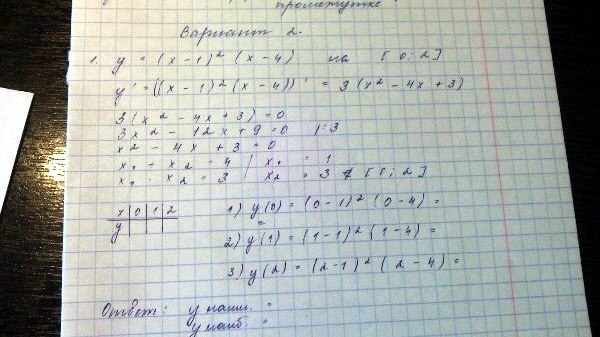 промежутке
Вариант 2.
1. y = (x-1)² (x-4) на [0; 2]
y' = ((x-1)² (x-4))' = 3(x² - 4x + 3)
3(x² - 4x + 3) = 0
3x² - 12x + 9 = 0 |:3
x² - 4x + 3 = 0
x₁ + x₂ = 4 | x₁ = 1
x₁ · x₂ = 3 | x₂ = 3 ∉ [0; 2]
x | 0 | 1 | 2
y
1) y(0) = (0-1)² (0-4) =
=
2) y(1) = (1-1)² (1-4) =
3) y(2) = (2-1)² (2-4) =
Ответ: y наим. =
y наиб. =